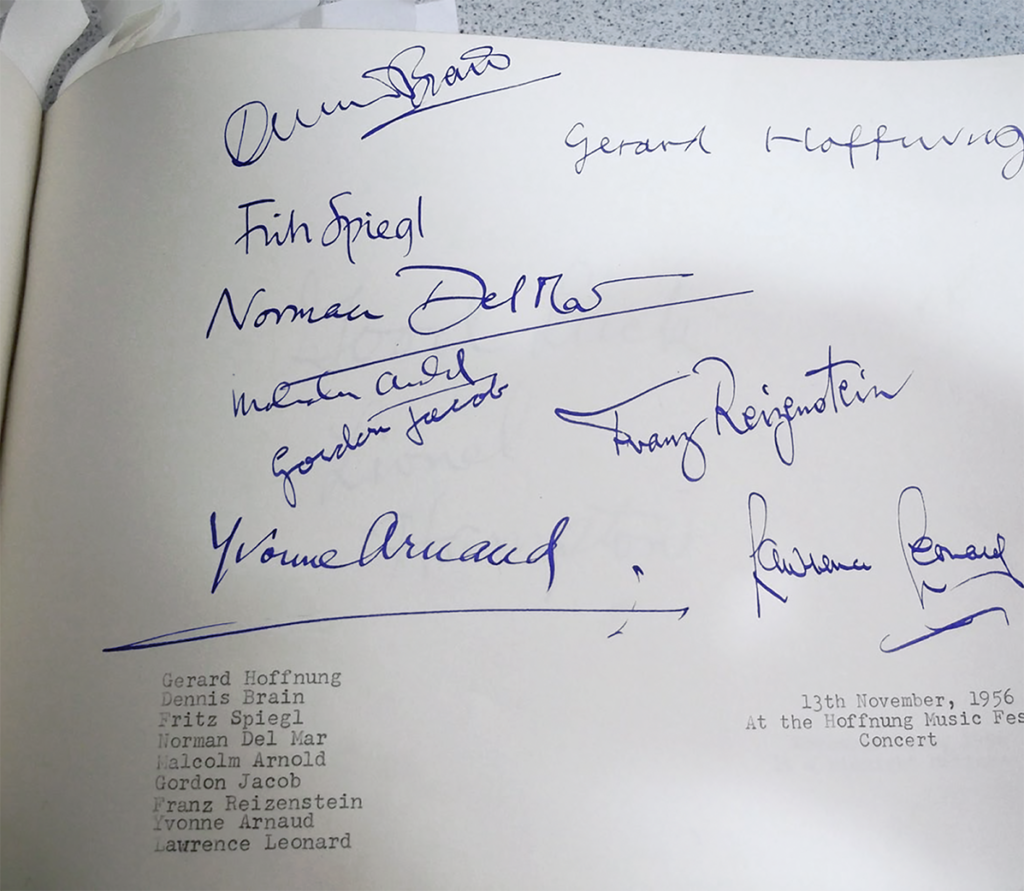 Dennis Brain
Gerard Hoffnung
Fritz Spiegl
Norman Del Mar
Malcolm Arnold
Gordon Jacob
Franz Reizenstein
Yvonne Arnaud
Lawrence Leonard
Gerard Hoffnung
Dennis Brain
Fritz Spiegl
Norman Del Mar
Malcolm Arnold
Gordon Jacob
Franz Reizenstein
Yvonne Arnaud
Lawrence Leonard
13th November, 1956
At the Hoffnung Music Fes
Concert